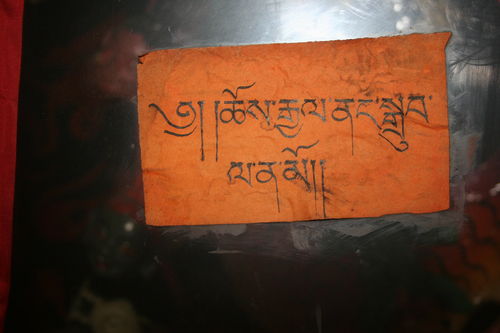 ༄། །ཆོས་རྒྱལ་ནང་སྒྲུབ་
ལ་ན་མོ།།